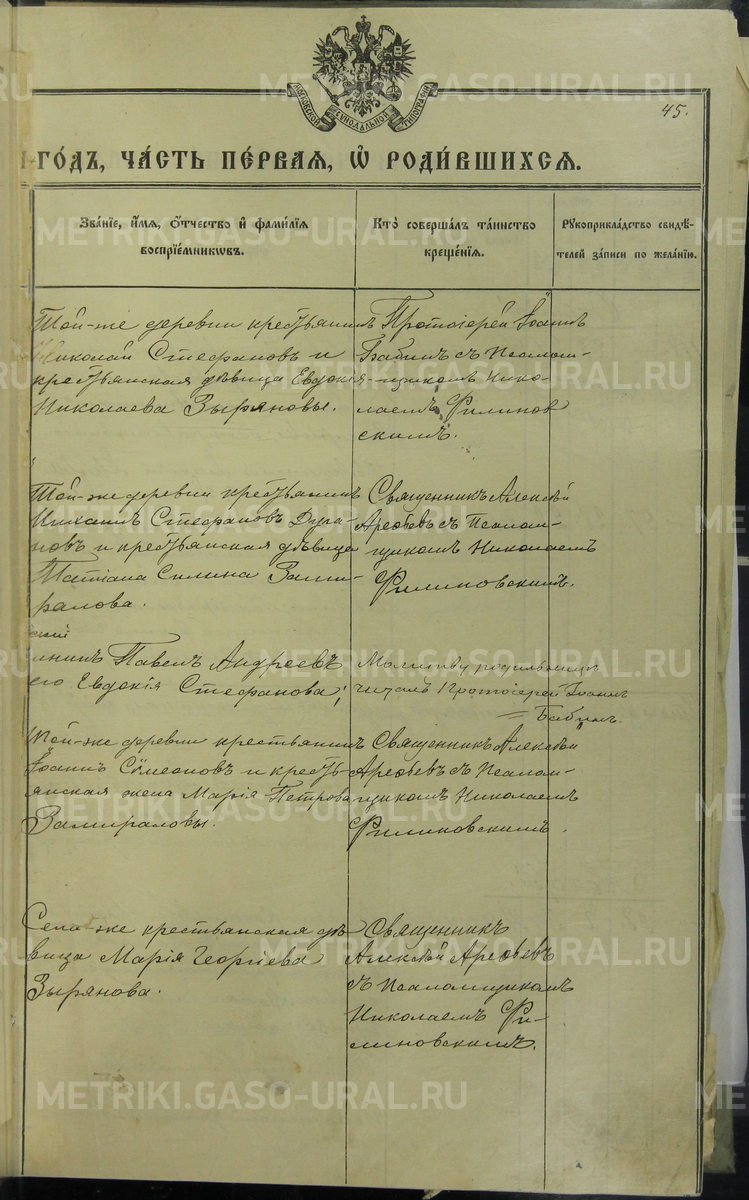 МОСКОВСКОЙ СѴНОДАЛЬНОЙ ТИПОГРАФІИ
45.
ГО́ДЪ, ЧА́СТЬ ПЕ́РВАЯ, Ѡ҆ РОДИ́ВШИХСЯ.
Зва́ніе, и҆́мя, ѻ҆́тчество и҆ фами́лїя
воспрїе́мникѡвъ.
Кто̀ соверша́лъ та́инство
креще́нїя.
Рꙋкоприкла́дство свидѣ́-
телей за́писи по жела́нїю.
Той-же деревни крестьянинъ
Николай Стефановъ и
крестьянская дѣвица Евдокія
Николаева Зыряновы.
Протоіерей Іоаннъ
Бабинъ съ Псалом-
щикомъ Нико-
лаемъ Филинов
скимъ.
Той-же деревни крестьянинъ
Михаилъ Стефановъ
новъ и крестьянская дѣвица
Татіана Силина Зами-
ралова.
Священникъ Алексѣй
Арефьевъ съ Псалом-
щикомъ Николаемъ
Филиновскимъ.
скій
Павелъ Андреевъ
его Евдокія Стефанова;
Молитву родильницѣ
читалъ Протоіерей Іоаннъ
Бабинъ.
Той-же деревни крестьянинъ
Іоаннъ Сѵмеоновъ и кресть-
янская жена Марія Петрова
Замираловы.
Священникъ Алексѣй
Арефьевъ съ Псалом-
щикомъ Николаемъ
Филиновскимъ.
Села-же крестьянская дѣ-
вица Марія Георгіева
Зырянова.
Священникъ
Алексѣй Арефьевъ
съ Псаломщикомъ
Николаемъ Фи-
линовскимъ.
METRIKI.GASO-URAL.RU